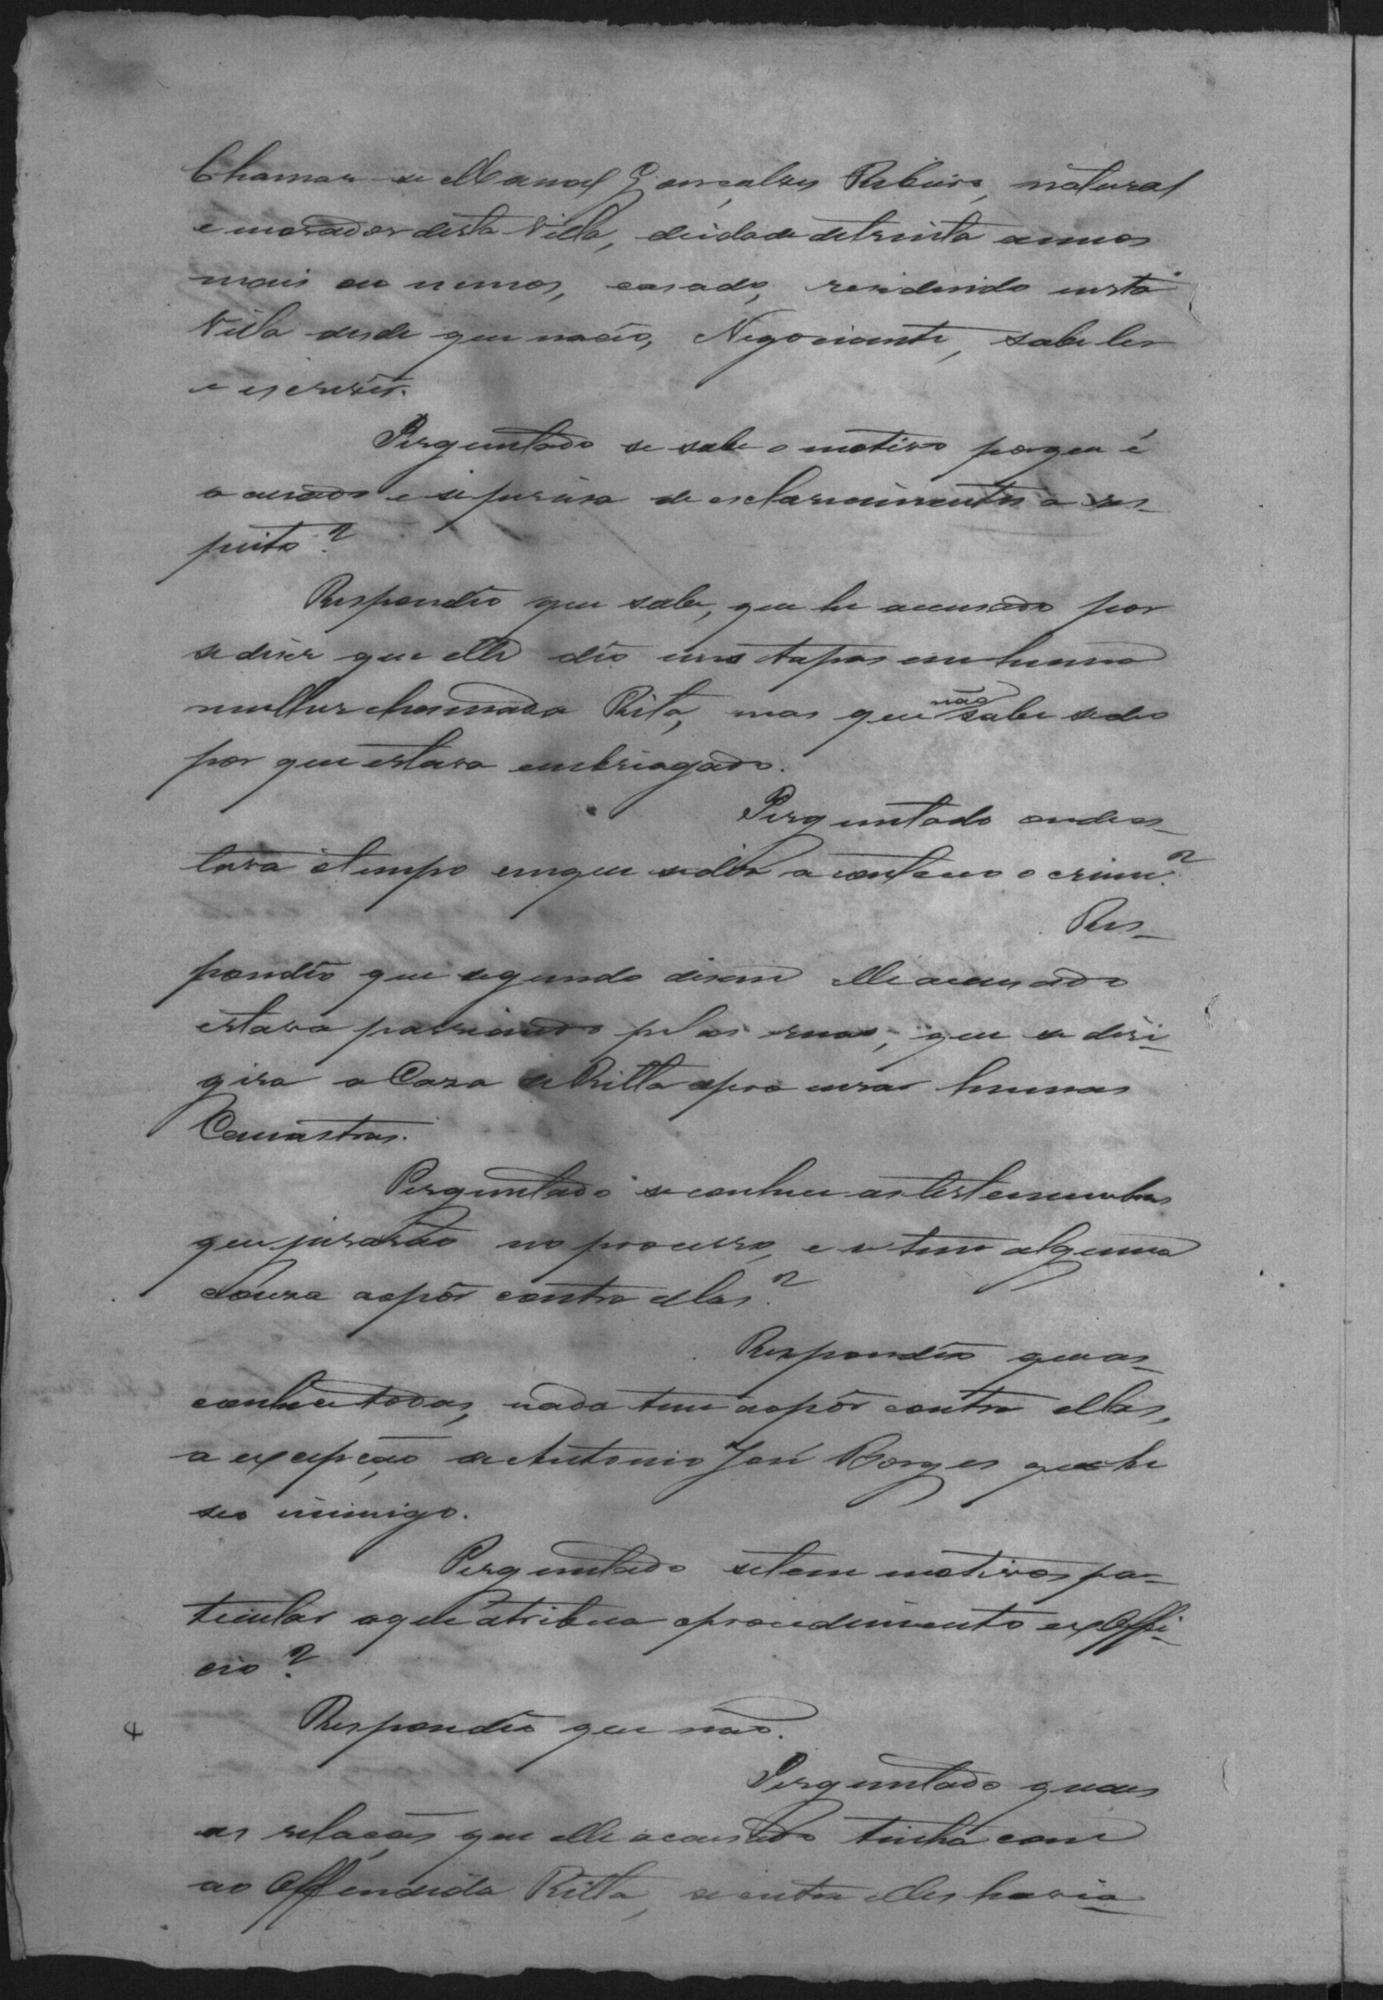 Chamar-se Manoel Gonçalves Ribeiro, natural
e morador desta Villa, de idade de trinta annos
mais ou menos, casado, residindo nesta
Villa desde que nacio, Negociante, sabe ler
e escrever.
Perguntado se sabe o motivo porque é
accusado e se precisa de esclarecimentos a res-
peito?
Respondeo que sabe, que he accusado por
se diser que elle deo uns tapas em huma
mulher chamada Rita, mas que não sabe se deo
por que estava embriagado.
Perguntado onde es-
tava o tempo em que se diz aconteceo o crime?
Res-
pondeo que segundo disem elle accusado
estava passeiando pelas ruas, que se diri-
gira a Casa de Ritta a procurar humas
Canastras.
Perguntado se conhece as testemunhas
que jurarão no processo, e se tem alguma
Couza a opôr contra ellas?
Respondeo que as
conhece todas, nada tem a opôr contra ellas,
a excepção de Antonio José Borges que he
seo inimigo.
Perguntado se tem motivos par-
ticular a que atribua o procedimento ex Offi-
cio?
Respondeo que não.
Perguntado quaes
as relaçães que elle accusado tinha com
ao Offendida Ritta, se entre elles havia